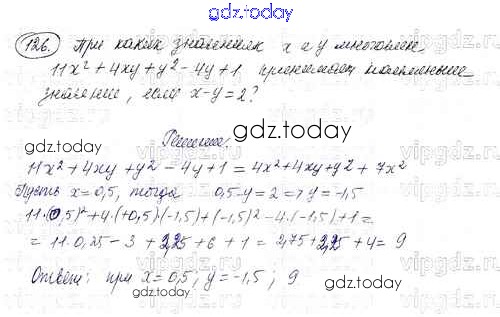 gdz.today
126. При каких значениях x и y многочлен
11x² + 4xy + y² - 4y + 1 принимает наименьшее
значение, если x-y=2?
gdz.today
Решение.
11x² + 4xy + y² - 4y + 1 = 4x² + 4xy + y² + 7x²
Пусть x=0,5, тогда 0,5-y=2 => y=-1,5
11·(0,5)² + 4·(+0,5)(-1,5) + (-1,5)² - 4·(-1,5) + 1 =
= 11·0,25 - 3 + 2,25 + 6 + 1 = 2,75 + 2,25 + 4 = 9
gdz.today
Ответ: при x=0,5; y=-1,5; 9
gdz.today
gdz.today